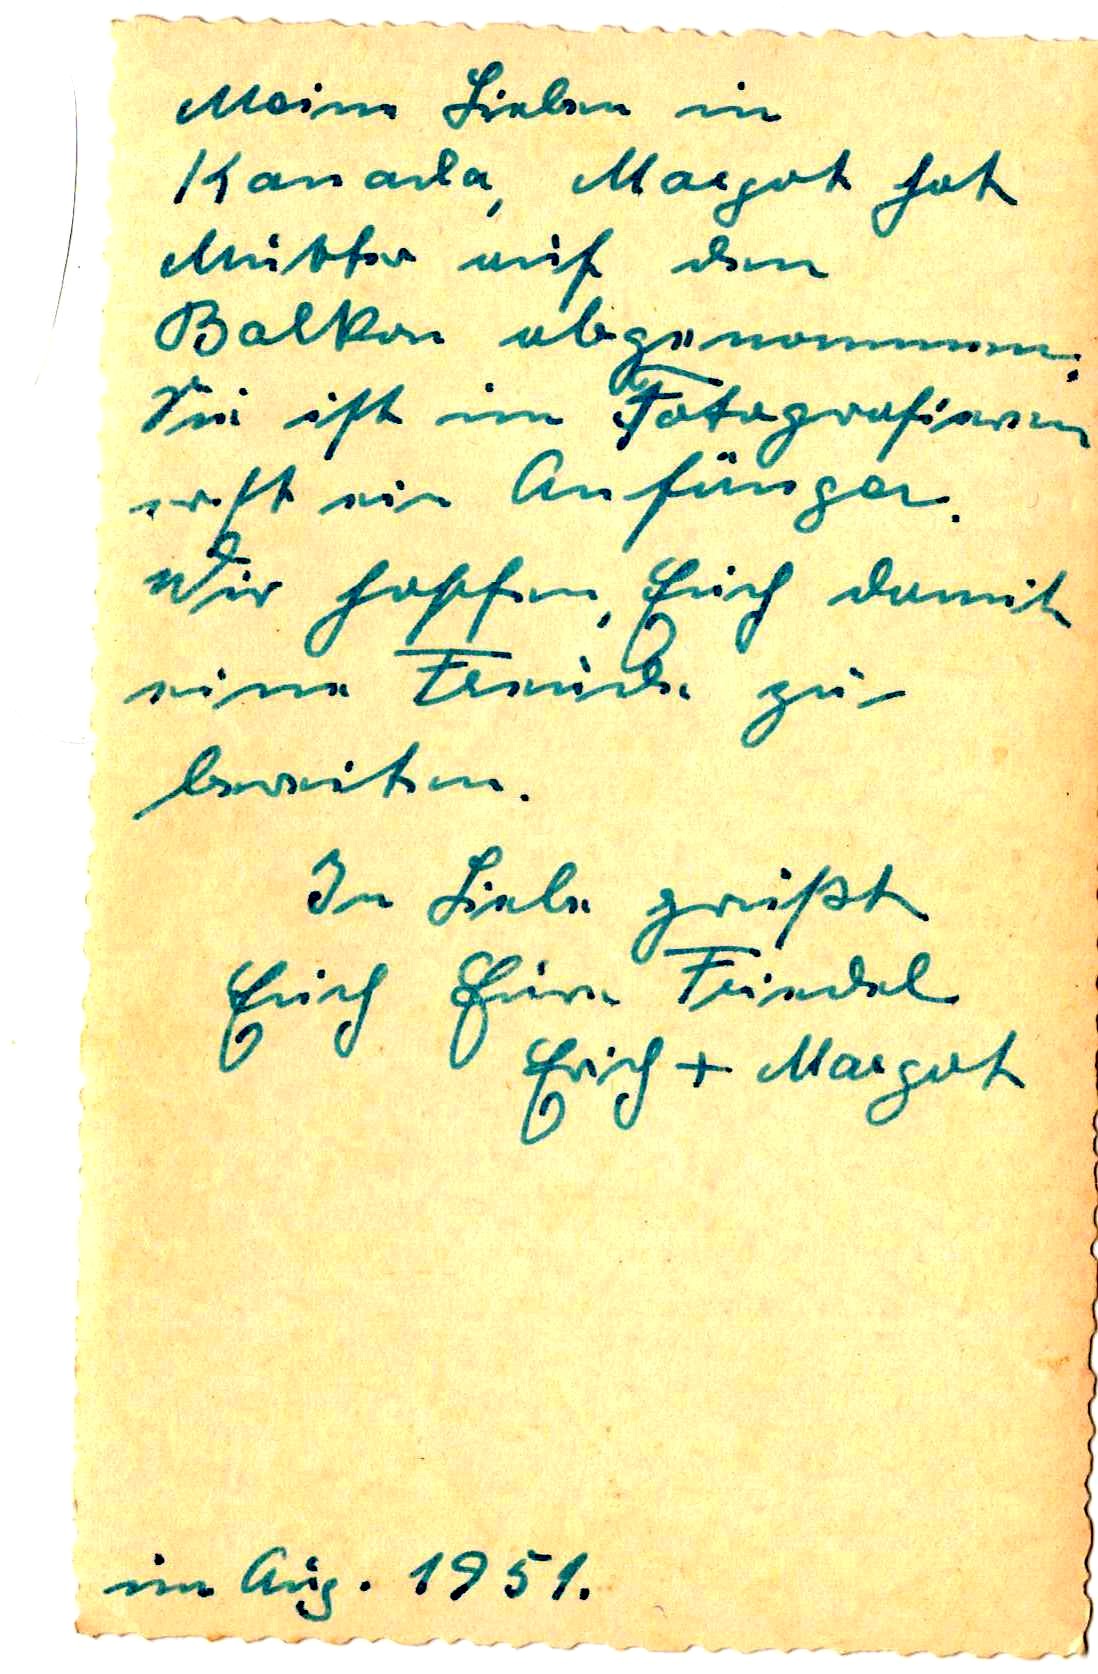 Meine Lieben in
Kanada, Margot hat
Mutter auf den
Balkon abgenommen.
Sie ist im Fotografieren
erst ein Anfänger.
Wir hoffen, Euch damit
eine Freude zu-
bereiten.
In Liebe grüßt
Euch Eure Friedel
Erich + Margot
im Aug. 1951.